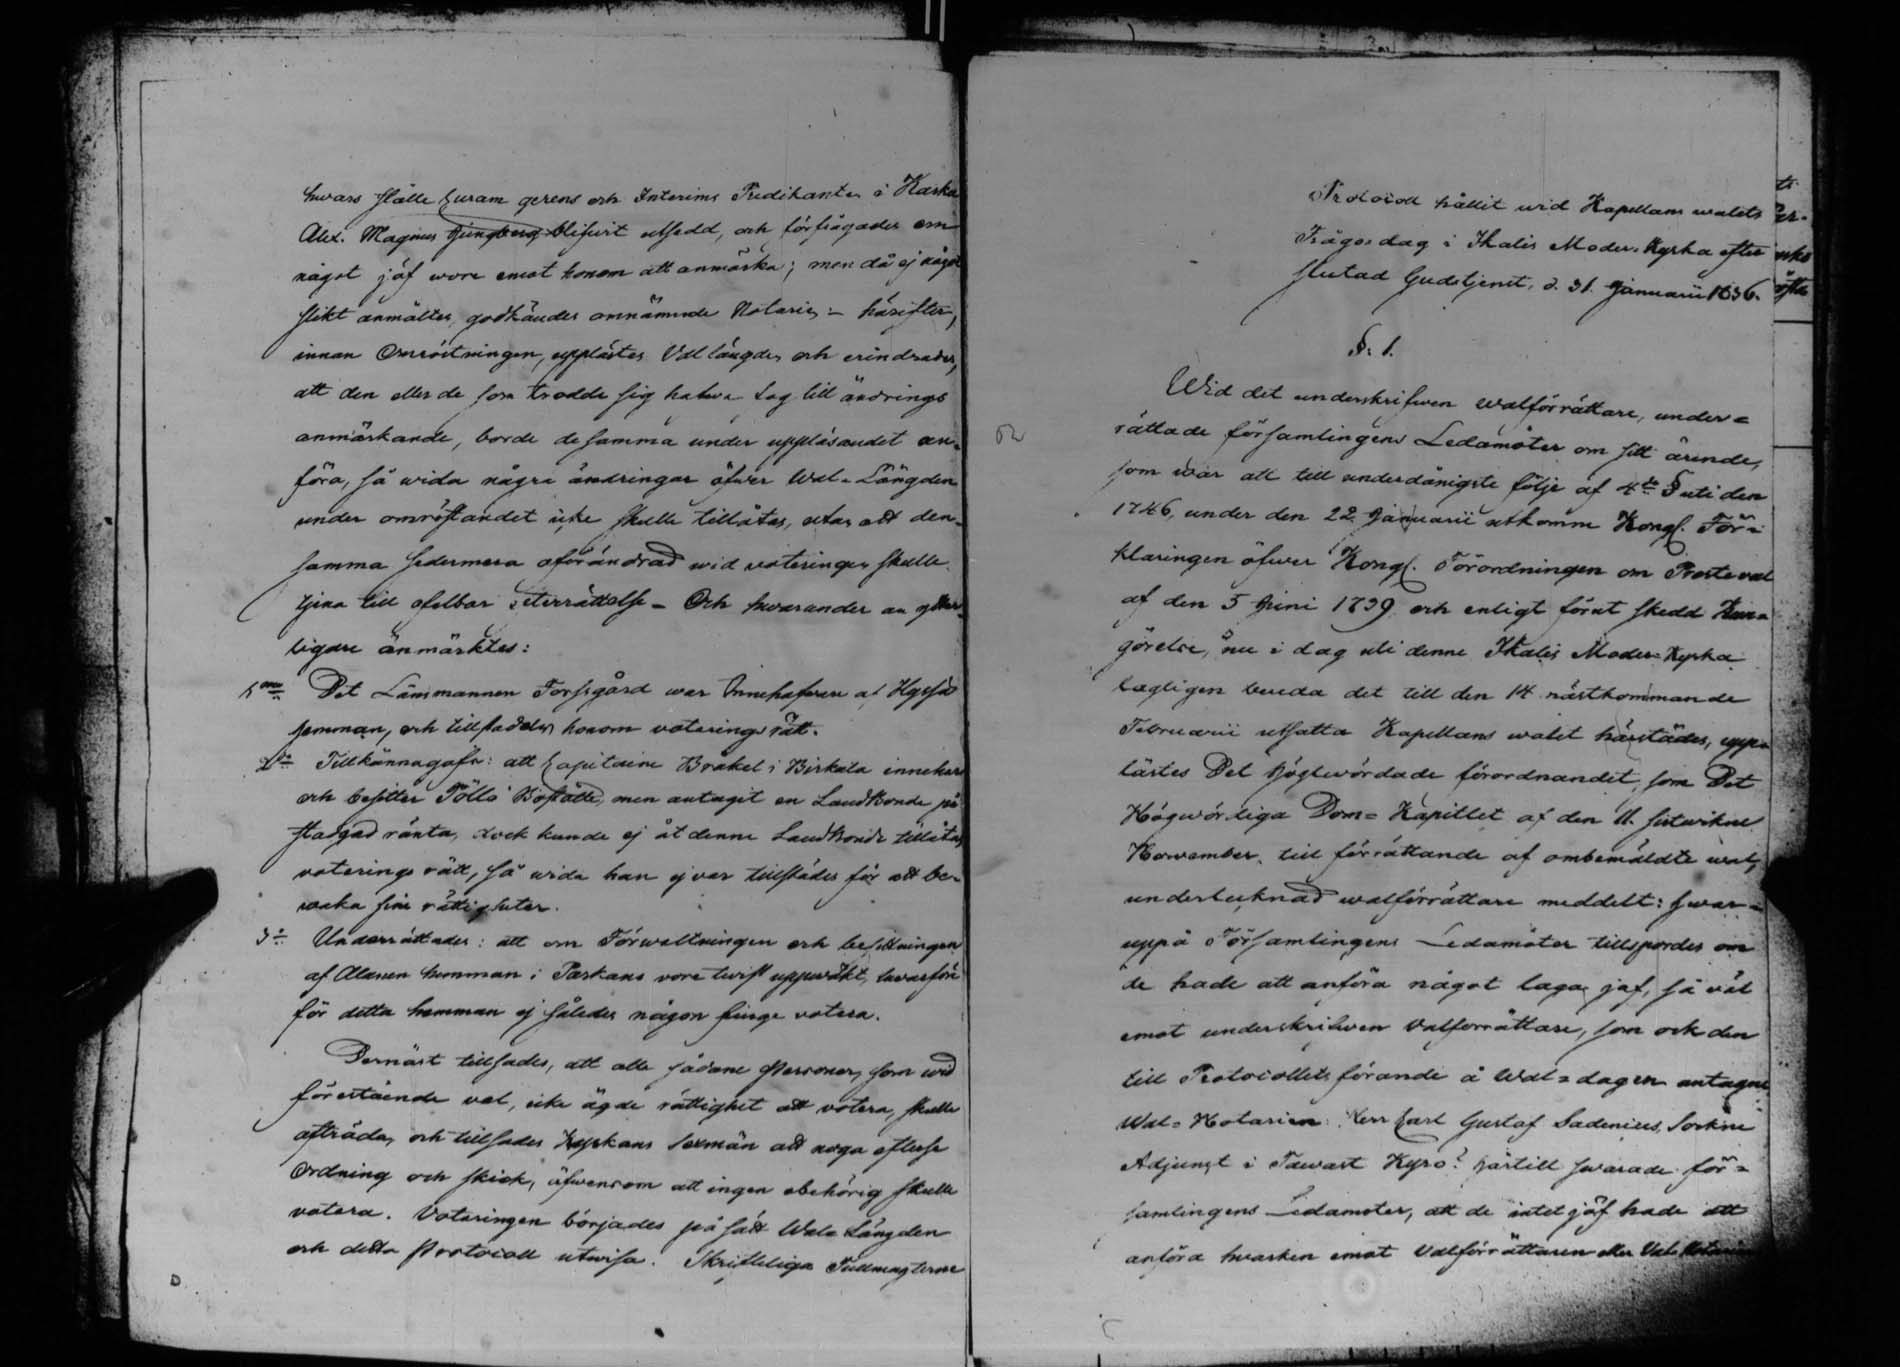 hwars ställe Curam gerens och Interims Predikanten i Karku
Alex. Magnus Ljungberg blifwit utsedd, och förfrågades om
något jäf wore emot honom att anmärka; men då ej något
slikt anmältes, godkändes omnämnde Notarie; - härefter,
innan Omröstningen, upplästes Vallängden och erindrades,
att den eller de som trodde sig hafwa fog till ändrings
anmärkande, borde desamma under uppläsandet an-
föra, så wida några ändringar öfwer Wal-Längden
under omröstandet icke skulle tillåtas, utan att den-
samma sedermera oförändrad wid voteringen skulle
tjena till ofelbar efterrättelse - Och hwarunder an ytter-
ligare anmärktes:
1mo Det Länsmannen Forsgård war Innehafware af Hyssä
hemman, och tillstaddes honom voterings rätt.
2do Tillkännagafs: att Capitaine Bråkel i Birkala innehar
och besitter Pöllö Boställe, men antagit en Landbonde på
stadgad ränta, dock kunde ej åt denne Landbonde tillåtas
voterings rätt, så wida han ej var tillstädes för att be-
waka sine rättigheter.
3o Underrättades: att om Förwaltningen och besittningen
af Alanen hemman i Parkano vore twist uppwäkt, hwarföre
för detta hemman ej således någon finge votera.
Dernäst tillsades, att alla sådane Personer, som wid
förestående val, icke ägde rättighet att votera, skulle
afträda, och tillsades Kyrkans Sexmän att noga efterse
Ordning och skick, äfwensom att ingen obehörig skulle
votera. Voteringen börjades på sätt Wal Längden
och detta Protocoll utwisa. Skriftliga Fullmagterne
Protocoll hållit wid Kapellans walets
Frågodag i Ikalis Moder-Kyrka efter
slutad Gudstjenst, d. 31. Januarii 1836.
§. 1.
Wid det underskrifwen walförrättare, under=
rättade församlingens Ledamöter om sitt ärende,
som war att till underdånigste följe af 4de § uti den
1746, under den 22 Januarii utkomne Kongl. För=
klaringen öfwer Kongl. Förordningen om Presteval
af den 5 Juni 1739 och enligt förut skedd Kun=
görelse, nu i dag uti denne Ikalis Moder-Kyrka
lagligen bereda det till den 14 nästkommande
Februarii utsatta Kapellans walet härstädes, upp=
lästes Det högtwördade förordnandet, som Det
Högwördiga Dom=Kapitlet af den 11. sistwikne
November, till förrättande af ombemäldte wal,
undertecknad walförrättare meddelt: hwar=
uppå Församlingens Ledamöter tillspordes om
de hade att anföra något laga jäf, så väl
emot underskrifwen Valförrättare, som ock den
till Protocollets förande å Wal=dagen antagne
Wal=Notarien Herr Carl Gustaf Sadenius, Sockne
Adjunct i Tawast Kyro? Härtill swarade för=
samlingens Ledamoter, att de intet jäf hade att
anföra hwarken emot Valförrättaren eller Val Notarien